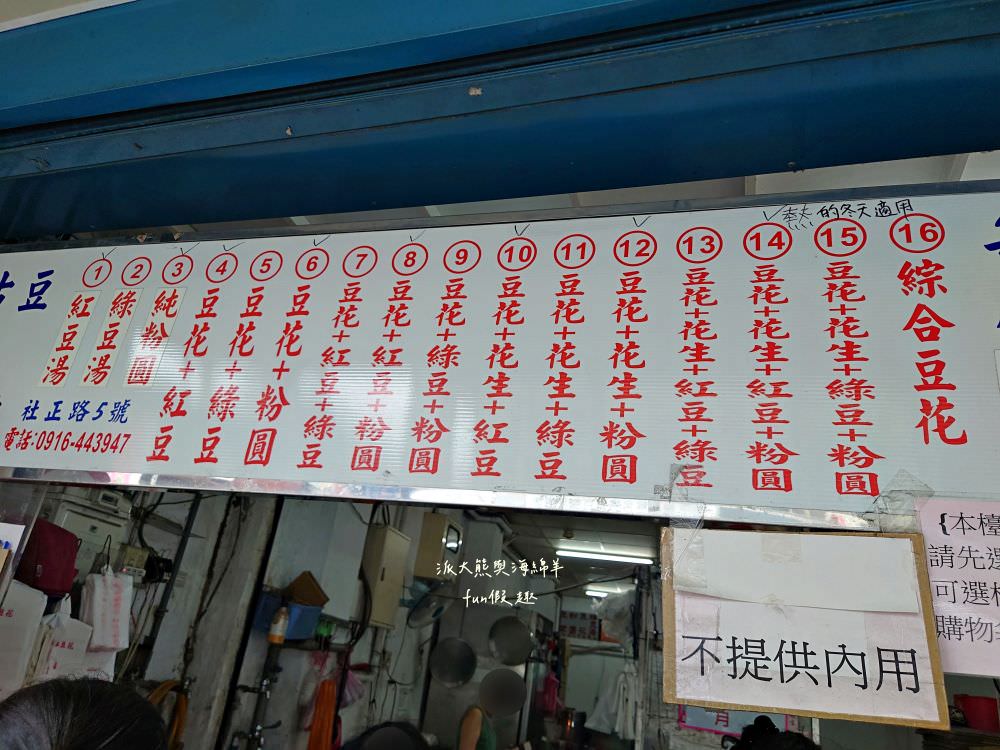 熱的冬天適用
豆
① 紅豆湯
② 綠豆湯
③ 純粉圓
④ 豆花+紅豆
⑤ 豆花+綠豆
⑥ 豆花+粉圓
⑦ 豆花+紅豆+綠豆
⑧ 豆花+紅豆+粉圓
⑨ 豆花+綠豆+粉圓
⑩ 豆花+花生+紅豆
⑪ 豆花+花生+綠豆
⑫ 豆花+花生+粉圓
⑬ 豆花+花生+紅豆+綠豆
⑭ 豆花+花生+紅豆+粉圓
⑮ 豆花+花生+綠豆+粉圓
⑯ 綜合豆花
社正路5號
電話:0916-443947
派大熊與海綿羊
fun假趣
不提供內用
{本檯
請先選
可選
購物